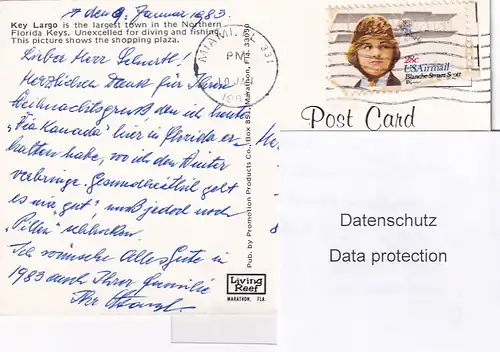 den 9. Januar 1983.
Key Largo is the largest town in the Northern
Florida Keys. Unexcelled for diving and fishing.
This picture shows the shopping plaza.
Lieber Herr
Herzlichen Dank für Ihren
Weihnachtsgruß den ich heute
"Via Kanada" hier in Florida er-
halten habe, wo ich den Winter
verbringe. Gesundheitlich geht
es mir "gut" muß jedoch noch
"Pillen" schlucken.
Ich wünsche alles Gute in
1983 auch Ihrer Familie
Ihr
Living
Reef
MARATHON, FLA.
Pub. by Promotion Products Co., Box 891, Marathon, Fla. 33050
MIAMI, FL 331
PM
USAirmail
28c
Blanche Stuart Scott
Post Card
Datenschutz
Data protection